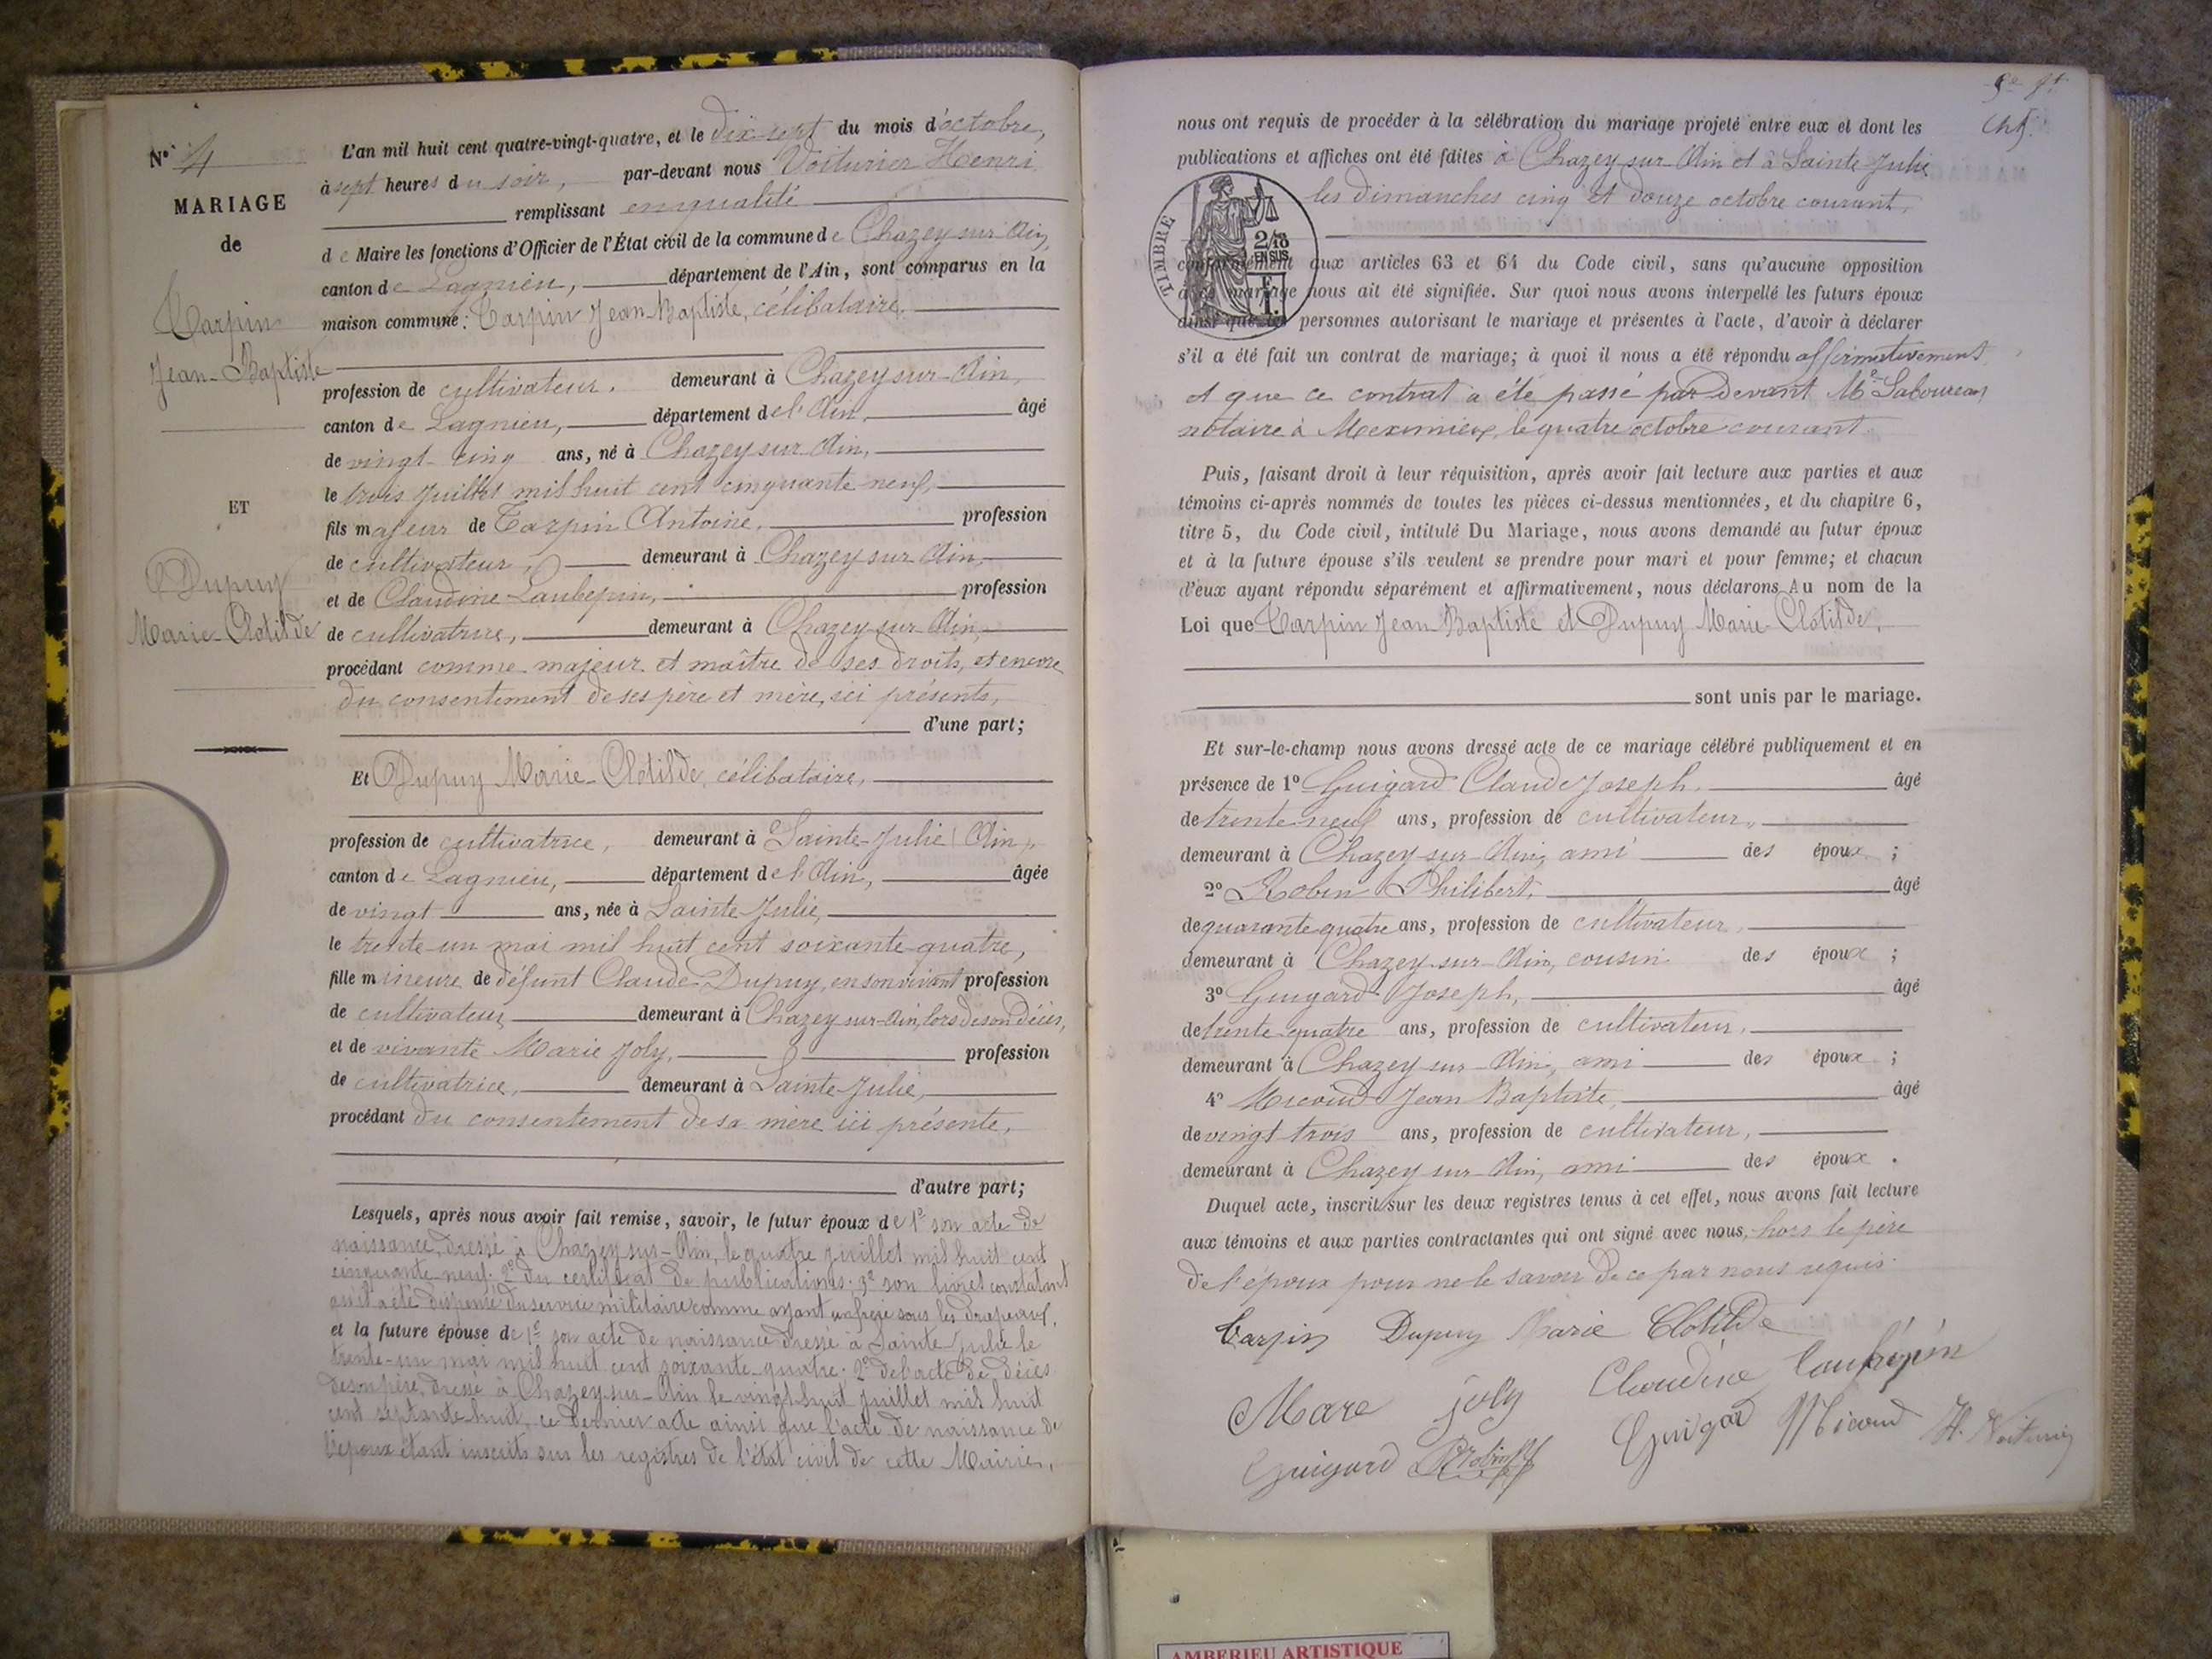 N° 4
MARIAGE
de
Carpin
Jean-Baptiste
ET
Dupuy
Marie-Clotilde
L'an mil huit cent quatre-vingt-quatre, et le dix-sept du mois d'octobre,
à sept heures du soir, par-devant nous Voiturier Henri
remplissant en qualité
de Maire les fonctions d'Officier de l'État civil de la commune de Chazey sur Ain,
canton de Lagnieu, département de l'Ain, sont comparus en la
maison commune : Carpin Jean-Baptiste, célibataire,
profession de cultivateur. demeurant à Chazey sur-Ain,
canton de Lagnieu, département de l'Ain, âgé
de vingt-cinq ans, né à Chazey sur Ain,
le trois juillet mil huit cent cinquante neuf,
fils majeur de Carpin Antoine, profession
de cultivateur, demeurant à Chazey sur Ain,
et de Claudine Laubepin, profession
de cultivatrice, demeurant à Chazey-sur-Ain,
procédant comme majeur et maître de ses droits, et encore
du consentement de ses père et mère, ici présents,
d'une part;
Et Dupuy Marie-Clotilde, célibataire,
profession de cultivatrice, demeurant à Sainte-Julie (Ain),
canton de Lagnieu, département de l'Ain, âgée
de vingt ans, née à Sainte Julie,
le trente-un mai mil huit cent soixante-quatre,
fille mineure de défunt Claude Dupuy, en son vivant profession
de cultivateur, demeurant à Chazey sur-Ain, lors de son décès,
et de vivante Marie Joly, profession
de cultivatrice, demeurant à Sainte-Julie,
procédant du consentement de sa mère ici présente,
d'autre part;
Lesquels, après nous avoir fait remise, savoir, le futur époux de 1° son acte de
naissance, dressé à Chazey sur-Ain, le quatre juillet mil huit cent
cinquante neuf; 2° du certificat de publications; 3° son livret constatant
qu'il a été dispensé du service militaire comme ayant un frère sous les drapeaux,
et la future épouse de 1° son acte de naissance dressé à Sainte-Julie le
trente-un mai mil huit cent soixante-quatre; 2° de l'acte de décès
de son père, dressé à Chazey-sur-Ain le vingt-huit juillet mil huit
cent septante-huit, ce dernier acte ainsi que l'acte de naissance de
l'époux étant inscrits sur les registres de l'état civil de cette Mairie,
nous ont requis de procéder à la célébration du mariage projeté entre eux et dont les
publications et affiches ont été faites à Chazey sur Ain et à Sainte-Julie
les dimanches cinq et douze octobre courant,
TIMBRE
2/10
EN SUS
conformément aux articles 63 et 64 du Code civil, sans qu'aucune opposition
à ce mariage nous ait été signifiée. Sur quoi nous avons interpellé les futurs époux
ainsi que les personnes autorisant le mariage et présentes à l'acte, d'avoir à déclarer
s'il a été fait un contrat de mariage; à quoi il nous a été répondu affirmativement
et que ce contrat a été passé par devant Me Laboureau
notaire à Meximieux, le quatre octobre courant.
Puis, faisant droit à leur réquisition, après avoir fait lecture aux parties et aux
témoins ci-après nommés de toutes les pièces ci-dessus mentionnées, et du chapitre 6,
titre 5, du Code civil, intitulé Du Mariage, nous avons demandé au futur époux
et à la future épouse s'ils veulent se prendre pour mari et pour femme; et chacun
d'eux ayant répondu séparément et affirmativement, nous déclarons Au nom de la
Loi que Carpin Jean-Baptiste et Dupuy Marie-Clotilde,
sont unis par le mariage.
Et sur-le-champ nous avons dressé acte de ce mariage célébré publiquement et en
présence de 1° Guigard Claude Joseph, âgé
de trente-neuf ans, profession de cultivateur,
demeurant à Chazey-sur-Ain, ami des époux ;
2° Robin Philibert, âgé
de quarante quatre ans, profession de cultivateur,
demeurant à Chazey-sur-Ain, cousin des époux ;
3° Guigard Joseph, âgé
de trente-quatre ans, profession de cultivateur,
demeurant à Chazey-sur-Ain, ami des époux ;
4° Micoud Jean Baptiste, âgé
de vingt trois ans, profession de cultivateur,
demeurant à Chazey sur Ain, ami des époux .
Duquel acte, inscrit sur les deux registres tenus à cet effet, nous avons fait lecture
aux témoins et aux parties contractantes qui ont signé avec nous, hors le père
de l'époux pour ne le savoir de ce par nous requis.
Carpin Dupuy Marie Clotilde
Mare joly Claudine Laubepin
Guigard Robin Guigard Micoud H. Voiturier
AMBERIEU ARTISTIQUE